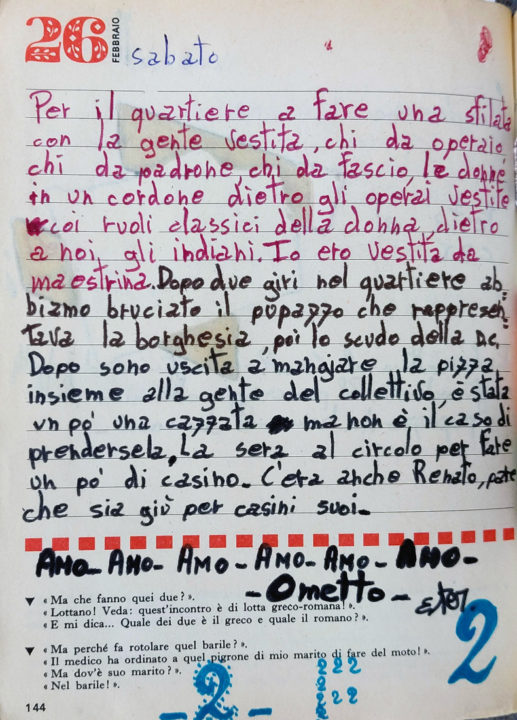 26 FEBBRAIO sabato
Per il quartiere a fare una sfilata
con la gente vestita, chi da operaio
chi da padrone, chi da fascio, le donne
in un cordone dietro gli operai vestite
coi ruoli classici della donna, dietro
a noi, gli indiani. Io ero vestita da
maestrina. Dopo due giri nel quartiere ab,
biamo bruciato il pupazzo che rappresen,
tava la borghesia, poi lo scudo della DC,
Dopo sono uscita a mangiare la pizza
insieme alla gente del collettivo, è stata
un po' una cazzata ma non è il caso di
prendersela, La sera al circolo per fare
un po' di casino. C'era anche Renato, pare
che sia giù per casini suoi.
AMO- AMO- AMO- AMO- AMO- AMO-
-Ometto-
▼ « Ma che fanno quei due? ».
« Lottano! Veda: quest'incontro è di lotta greco-romana! ».
« E mi dica... Quale dei due è il greco e quale il romano? ».
▼ « Ma perché fa rotolare quel barile? ».
« Il medico ha ordinato a quel pigrone di mio marito di fare del moto! ».
« Ma dov'è suo marito? ».
« Nel barile! ».
2
-2-
222
22
144